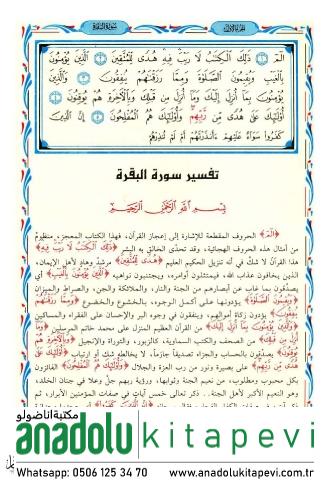 الجزء الأول
سورة البقرة
الٓمٓ ﴿١﴾ ذَٰلِكَ الْكِتَابُ لَا رَيْبَ فِيهِ هُدًى لِّلْمُتَّقِينَ ﴿٢﴾ الَّذِينَ يُؤْمِنُونَ
بِالْغَيْبِ وَيُقِيمُونَ الصَّلَوٰةَ وَمِمَّا رَزَقْنَاهُمْ يُنفِقُونَ ﴿٣﴾ وَالَّذِينَ
يُؤْمِنُونَ بِمَا أُنزِلَ إِلَيْكَ وَمَا أُنزِلَ مِن قَبْلِكَ وَبِالْآخِرَةِ هُمْ يُوقِنُونَ ﴿٤﴾
أُولَٰئِكَ عَلَىٰ هُدًى مِّن رَّبِّهِمْ وَأُولَٰئِكَ هُمُ الْمُفْلِحُونَ ﴿٥﴾ إِنَّ الَّذِينَ
كَفَرُوا سَوَاءٌ عَلَيْهِمْ ءَأَنذَرْتَهُمْ أَمْ لَمْ تُنذِرْهُمْ
تفسير سورة البقرة
بسم الله الرحمن الرحيم
﴿الٓمٓ﴾ الحروف المقطعة للإشارة إلى إعجاز القرآن، فهذا الكتاب المعجز، منظوم
من أمثال هذه الحروف الهجائية، وقد تحدَّى الخالق به البشر ﴿ذَٰلِكَ الْكِتَابُ لَا رَيْبَ فِيهِ﴾
هذا القرآن لا شكَّ في أنه تنزيل الحكيم العليم ﴿هُدًى لِّلْمُتَّقِينَ﴾ مرشدٌ وهادٍ لأهل الإيمان،
الذين يخافون عذاب الله، فيمتثلون أوامره، ويجتنبون نواهيه ﴿الَّذِينَ يُؤْمِنُونَ بِالْغَيْبِ﴾ أي
يصدِّقون بما غاب عن أبصارهم من الجنة والنار، والملائكة والجن، والصراط والميزان
﴿وَيُقِيمُونَ الصَّلَوٰةَ﴾ يؤدونها على أكمل الوجوه، بالخشوع والخضوع ﴿وَمِمَّا رَزَقْنَاهُمْ
يُنفِقُونَ﴾ يؤدون زكاة أموالهم، وينفقون في وجوه البر والإحسان على الفقراء والمساكين
﴿وَالَّذِينَ يُؤْمِنُونَ بِمَا أُنزِلَ إِلَيْكَ﴾ من القرآن العظيم المنزل على محمد خاتم المرسلين
﴿وَمَا أُنزِلَ مِن قَبْلِكَ﴾ من الصحف والكتب السماوية، كالزبور، والتوراة والإنجيل ﴿وَبِالْآخِرَةِ هُمْ
يُوقِنُونَ﴾ يصدِّقون بالحساب والجزاء تصديقاً جازماً، لا يخالطه شكٌّ أو ارتياب ﴿أُولَٰئِكَ
عَلَىٰ هُدًى مِّن رَّبِّهِمْ﴾ على بصيرة ونور من رب العزة والجلال ﴿وَأُولَٰئِكَ هُمُ الْمُفْلِحُونَ﴾ الفائزون
بكل محبوب ومطلوب، من نعيم الجنة وثوابها، ورؤية ربهم جلَّ وعلا في جنان الخلد،
مكتبة اناضولو
anadolu kitapevi
Whatsapp: 0506 125 34 70 www.anadolukitapevi.com.tr